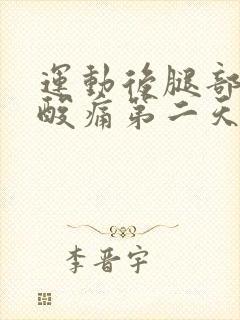 運動後腿部
酸痛第二天
李晋宇